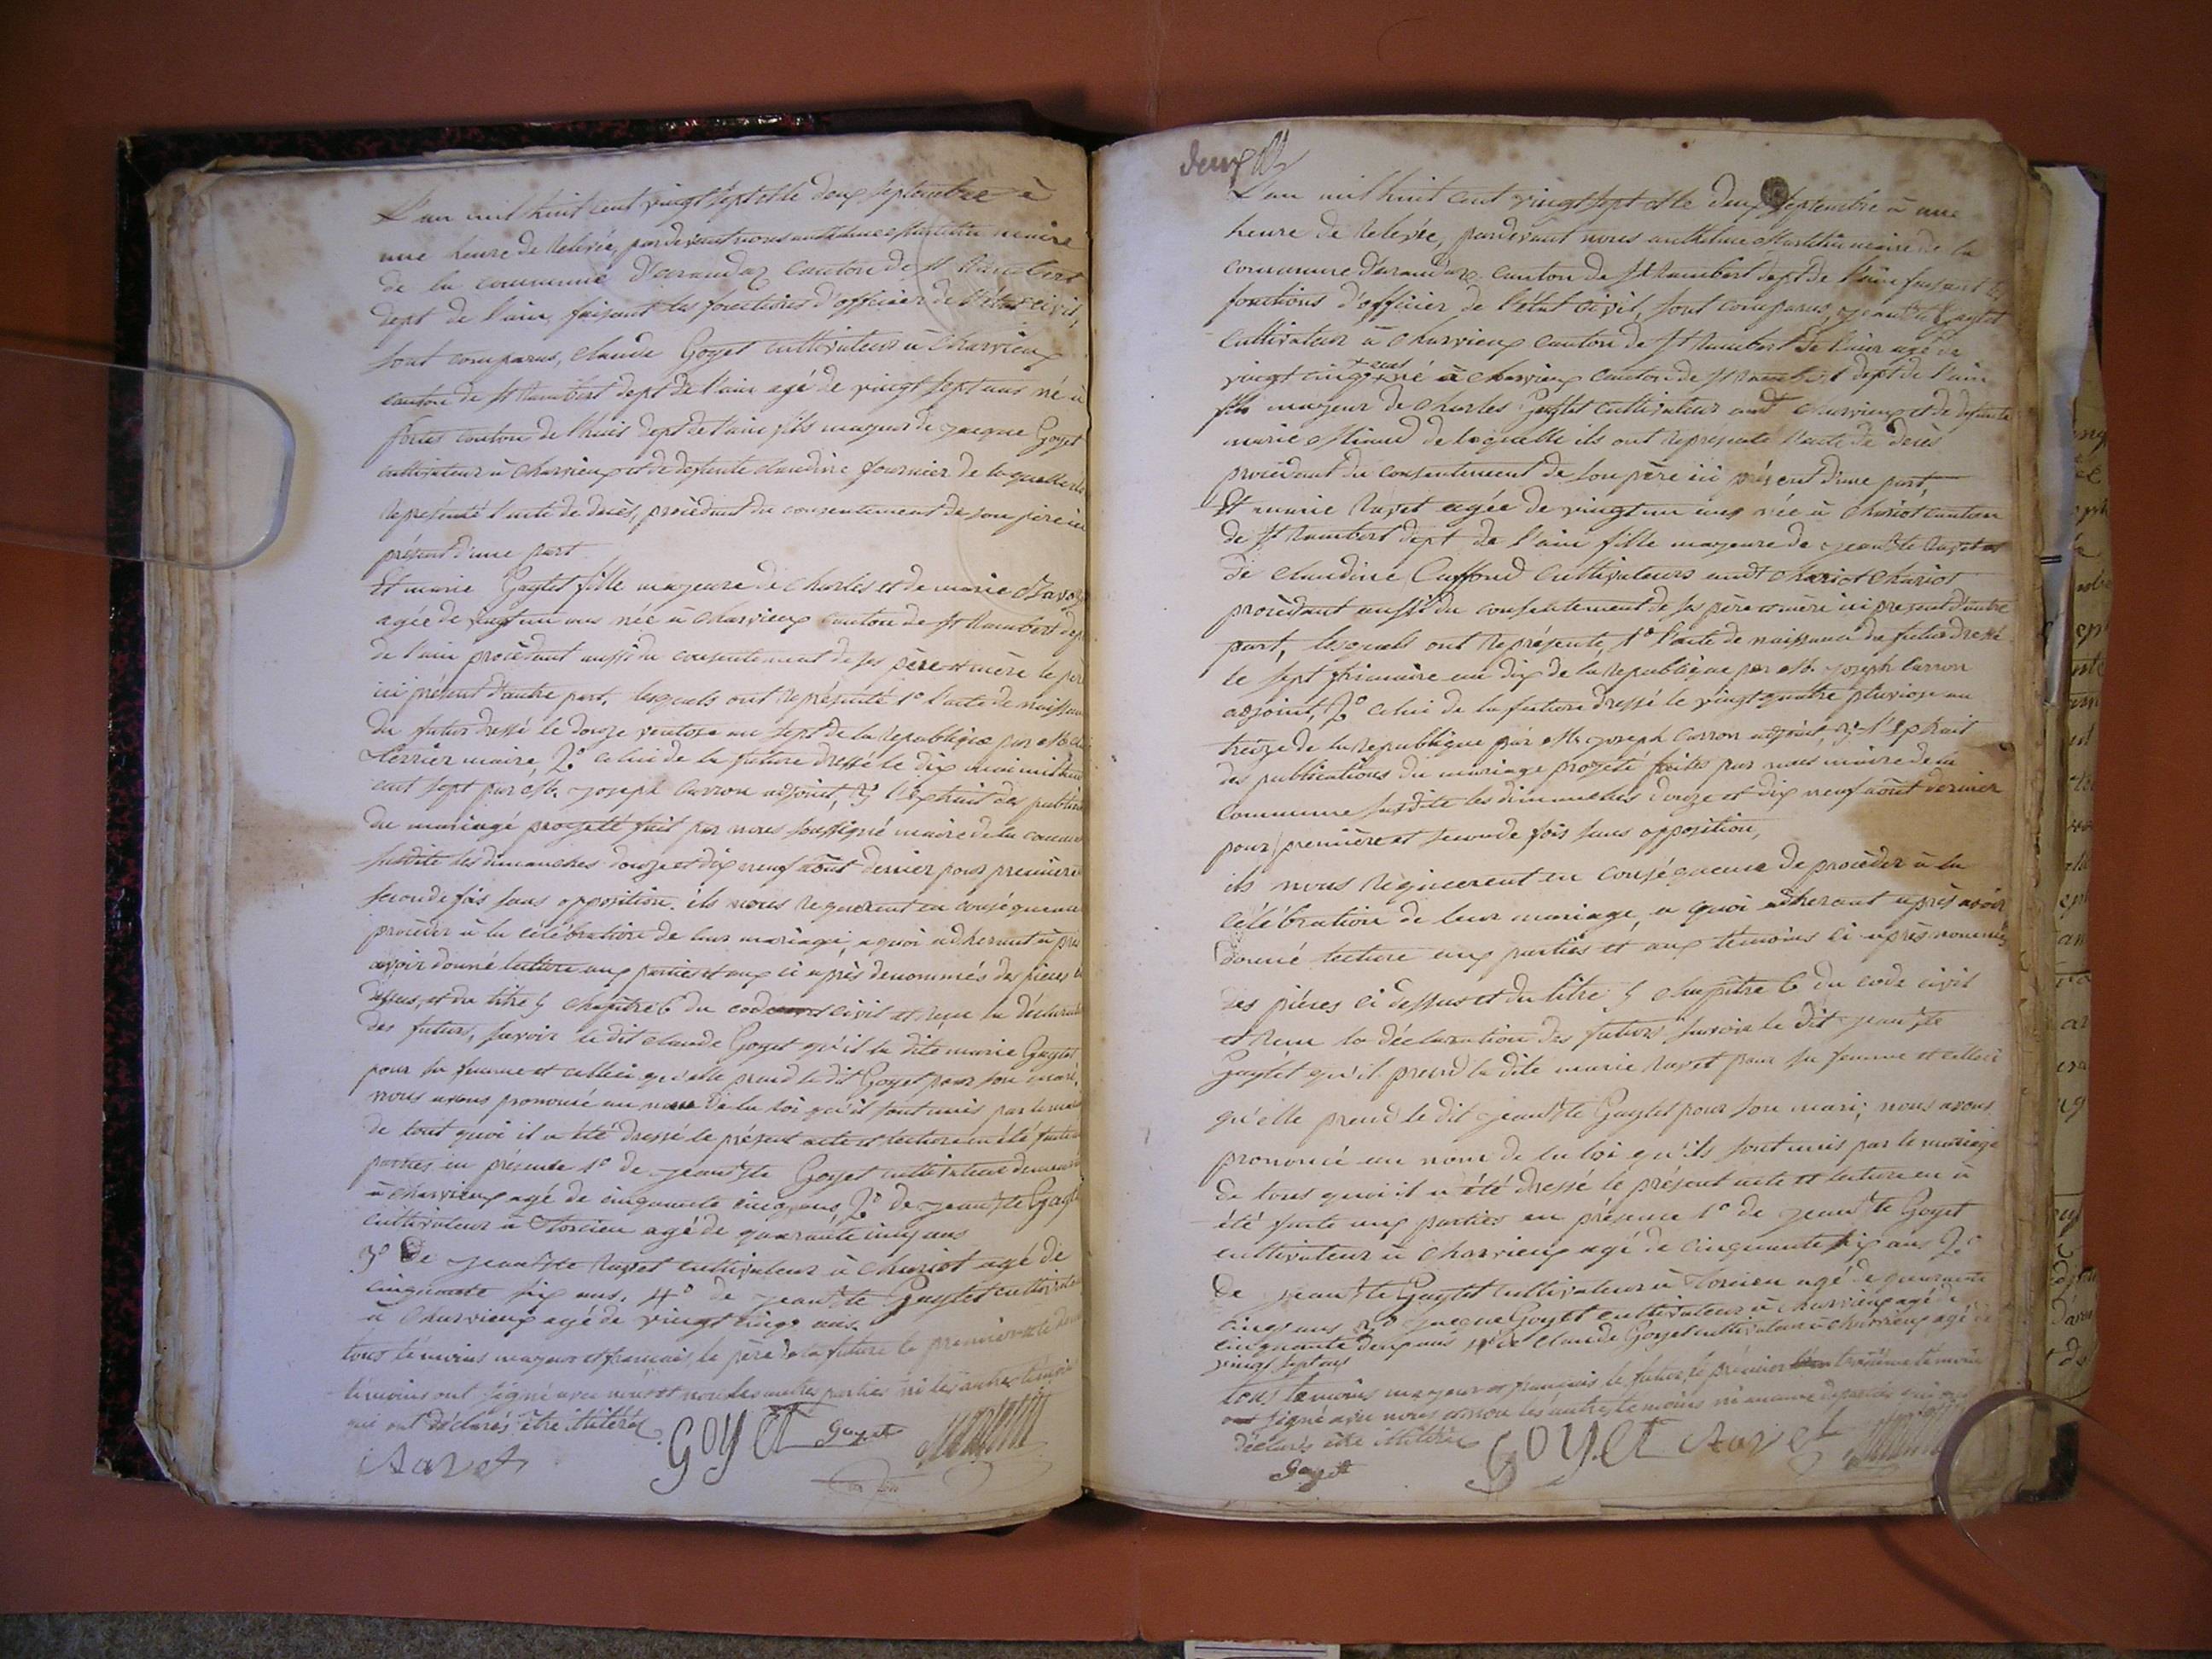 L'an mil huit cent vingt sept et le deux septembre à
une heure de relevée, pardevant nous anthelme Martelin maire
de la commune D'arandaz canton de St Rambert
dept de l'ain, faisant les fonctions d'officier de l'état civil,
sont comparus, claude Goyet cultivateur à Charvieux
canton de St Rambert dept de l'ain agé de vingt sept ans né à
canton de dept de l'ain fils mageur de jacque Goyet
cultivateur à charvieux et de defunte claudine fournier de laquelle
représenté l'acte de décès, procédant du consentement de son père ici
présent d'une part
Et marie Gaytet fille mageure de charles et de marie
agée de vingt un ans née à charvieux canton de St Rambert dep
de l'ain procédant aussi du consentement de ses père et mère le pèr
ici présent d'autre part. lesquels ont représenté 1° l'acte de naissan
du futur dressé le douze ventose an sept de la republique par
maire, 2° celui de la future dressé le dix mai mil hui
cent sept par Mr. joseph Carron adjoint, 3° l'extrait des publica
du mariage progeté fait par nous soussigné maire de la commun
susdite les dimanches douze et dix neuf août dernier pour première
seconde fois sans opposition. ils nous requerent en conséquence
procéder à la célébration de leur mariage, a quoi adherant après
avoir donné lecture aux parties et aux ci après denommés des pièces
dessus, et du titre 5 chapitre 6 du code civil et reçu la déclarat
des futurs, savoir le dit claude Goyet qu'il la dite marie Gaytet
pour sa femme et celleci qu'elle prend le dit Goyet pour son mari,
nous avons prononcé au nom de la loi qu'il sont unis par le mar
de tout quoi il a été dressé le présent acte et lecture en été faite
parties en présence 1° de jean Bte Goyet cultivateur demeur
à charvieux agé de cinquante cinq ans, 2° de jean Bte Gayt
cultivateur à Torcieu agé de quarante cinq ans
3° De jean Bte Ravet cultivateur à chariot agé de
cinquante six ans. 4° de jean Bte Gaytet cultivat
à Charvieux agé de vingt cinq ans.
tous témoins mageur et français, le père de la future le premier et le
témoins ont signé avec nous et non les autres parties ni les autres témoin
qui ont déclarés être illitérés
GOYET Gayet
Ravet
deux
L'an mil huit cent vingt sept et le deux septembre à une
heure de relevée, pardevant nous anthelme Martelin maire de la
commune d'arandaz canton de St Rambert dept de l'ain faisant les
fonctions d'officier de l'état civil, sont comparus, jean Bte Gaytet
cultivateur à charvieux canton de St Rambert De l'ain agé de
vingt cinq ans né à charvieux canton de St Rambert dept de l'ain
fils mageur de charles Gaytet cultivateur audt charvieux et de defunte
marie de laquelle ils ont représenté l'acte de decès
procédant du consentement de son père ici présent d'une part,
Et marie Ravet agée de vingt un ans née à chariot canton
de St Rambert dept de l'ain fille mageure de jean Bte Ravet et
de claudine cultivateurs audt chariot chariot
procédant aussi du consentement de ses père et mère ici present d'autre
part, lesquels ont représenté, 1° l'acte de naissance du futur dressé
le sept frimaire an dix de la republique par Mr. joseph Carron
adjoint, 2° celui de la future dressé le vingt quatre pluviose an
treize de la republique par Mr. joseph Carron adjoint, 3° l'extrait
des publications du mariage progeté faites par nous maire de la
commune susdite les dimanches douze et dix neuf août dernier
pour première et seconde fois sans opposition,
ils nous requerent en conséquence de procéder à la
célébration de leur mariage, a quoi adherant après avoir
donné lecture aux parties et aux témoins ci après nommés
des pièces ci dessus et du titre 5 chapitre 6 du code civil
et reçu la déclaration des futurs savoir le dit jean Bte
Gaytet qu'il prend la dite marie Ravet pour sa femme et celleci
qu'elle prend le dit jean Bte Gaytet pour son mari; nous avons
prononcé au nom de la loi qu'ils sont unis par le mariage
de tous quoi il a été dressé le présent acte et lecture en à
été faite aux parties en présence 1° de jean Bte Goyet
cultivateur à charvieux agé de cinquante six ans 2°
De jean Bte Gaytet cultivateur à Torcieu agé de quarante
cinq ans 3° jacque Goyet cultivateur à charvieux agé de
cinquante deux ans 4° de claude Goyet cultivateur à charvieux agé de
vingt sept ans
tous témoins mageur et français le futur, le premier troisième témoin
ont signé avec nous et non les autres témoins ni aucune des parties qui ont
déclarés être illitérés
Gayet GOYET Ravet